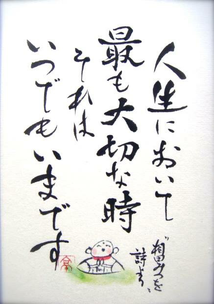 人生において
最も大切な時
それは
いつでもいまです
“相田みつを
詩より”